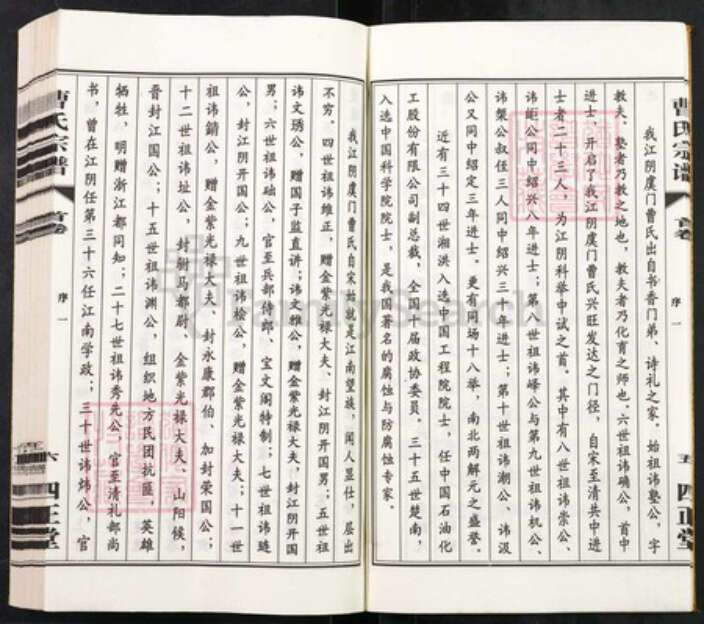 曹氏宗谱
首卷
序一
五
四正堂
我江阴虞门曹氏出自书香门弟、诗礼之家。始祖讳塾公,字
教夫。塾者乃教之地也,教夫者乃化育之师也。六世祖讳确公,首中
进士,开启了我江阴虞门曹氏兴旺发达之门径,自宋至清共中进
士者二十三人,为江阴科举中试之首。其中有八世祖讳崇公、
讳歫公同中绍兴八年进士;第八世祖讳峰公与第九世祖讳机公、
讳槩公叔侄三人同中绍兴三十年进士;第十世祖讳潮公、讳汲
公又同中绍定三年进士。更有同场十八举,南北两解元之盛誉。
近有三十四世湘洪入选中国工程院院士,任中国石油化
工股份有限公司副总裁,全国十届政协委员。三十五世楚南,
入选中国科学院院士,是我国著名的腐蚀与防腐蚀专家。
我江阴虞门曹氏自宋始就是江南望族,闻人显仕,层出
不穷。四世祖讳维正,赠金紫光禄大夫、封江阴开国男;五世祖
讳文琇公,赠国子监直讲;讳文雅公,赠金紫光禄大夫,封江阴开国
男;六世祖讳础公,官至兵部侍郎、宝文阁特制;七世祖讳琏
公,封江阴开国公;九世祖讳桧公,赠金紫光禄大夫;十一世
祖讳錥公,赠金紫光禄大夫、封永康郡伯、加封荣国公;
十二世祖讳址公,封驸马都尉、金紫光禄大夫、山阳候,
晋封江国公;十五世祖讳渊公,组织地方民团抗匪,英雄
牺牲,明赠浙江都同知;二十七世祖讳秀先公,官至清礼部尚
书,曾在江阴任第三十六任江南学政;三十世讳炜公,官
曹氏宗谱
首卷
序一
六
四正堂
FamilySearch